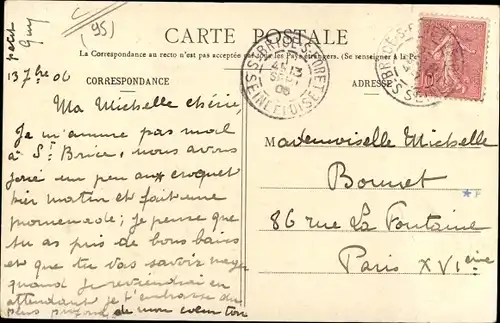 (95)
CARTE POSTALE
La Correspondance au recto n'est pas acceptée par tous les Pays étrangers. (Se renseigner à la Poste)
CORRESPONDANCE
ADRESSE
petit
Guy
13 7bre 06
ST BRICE-S-FORET
13
SEPT
06
SEINE ET OISE
Ma Michelle chérie,
Je m'amuse pas mal
à St Brice, nous avons
joué un peu au croquet
hier matin et fait une
promenade; je pense que
tu as pris de bons bains
et que tu vas savoir nager
quand je reviendrai en
attendant je t'embrasse du
plus profond de mon cœur ton
Mademoiselle Michelle
Bonnet
86 rue La Fontaine
Paris XVIème
10